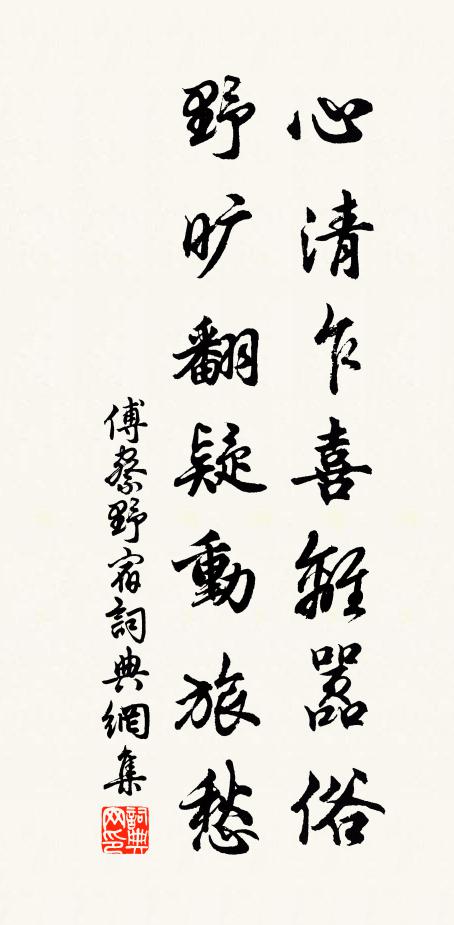 心清乍喜離嚣俗
野旷翻疑動旅愁
傅察野宿詞典網集
詞典网印